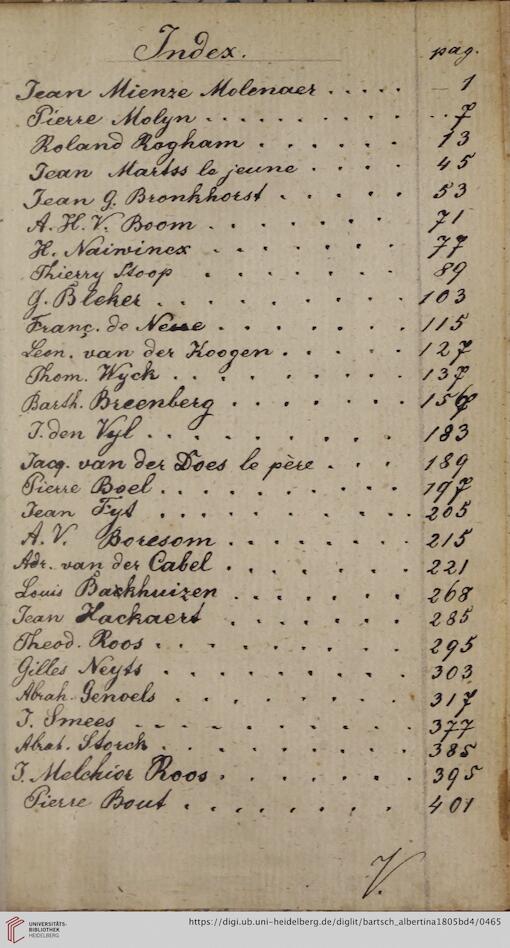 Index. pag.
Jean Mienze Molenaer . . . . . 1
Pierre Molyn . . . . . . . . . . 7
Roland Rogham . . . . . . 13
Jean Martss le jeune . . . . 45
Jean G. Bronkhorst . . . . . 53
A. H. V. Boom . . . . . . . 71
H. Naiwincx . . . . . . . 77
Thierry Stoop . . . . . . . 89
G. Bleker . . . . . . . . . 103
Franç. de Neue . . . . . . . 115
Leon. van der Koogen . . . . . 127
Thom. Wyck . . . . . . . . 137
Barth. Breenberg . . . . . . . 157
J. den Uyl . . . . . . . . . 183
Jacq. van der Does le père . . . 189
Pierre Boel . . . . . . . . . 197
Jean Fyt . . . . . . . . . . 205
A. V. Boresom . . . . . . . 215
Adr. van der Cabel . . . . . . . 221
Louis Backhuizen . . . . . . . 268
Jean Hackaert . . . . . . . 285
Theod. Roos . . . . . . . . . 295
Gilles Neyts . . . . . . . . . 303
Abrah. Genoels . . . . . . . . 317
J. Smees . . . . . . . . . . 377
Abrah. Storck . . . . . . . . . 385
J. Melchior Roos . . . . . . . 395
Pierre Bout . . . . . . . . 401
V.
UNIVERSITÄTS-
BIBLIOTHEK
HEIDELBERG
https://digi.ub.uni-heidelberg.de/diglit/bartsch_albertina1805bd4/0465